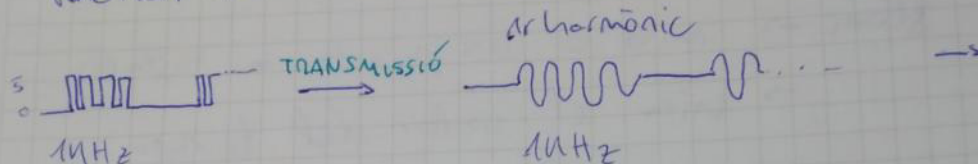 1r harmònic
5
TRANSMISSIÓ
0
1MHz
1MHz